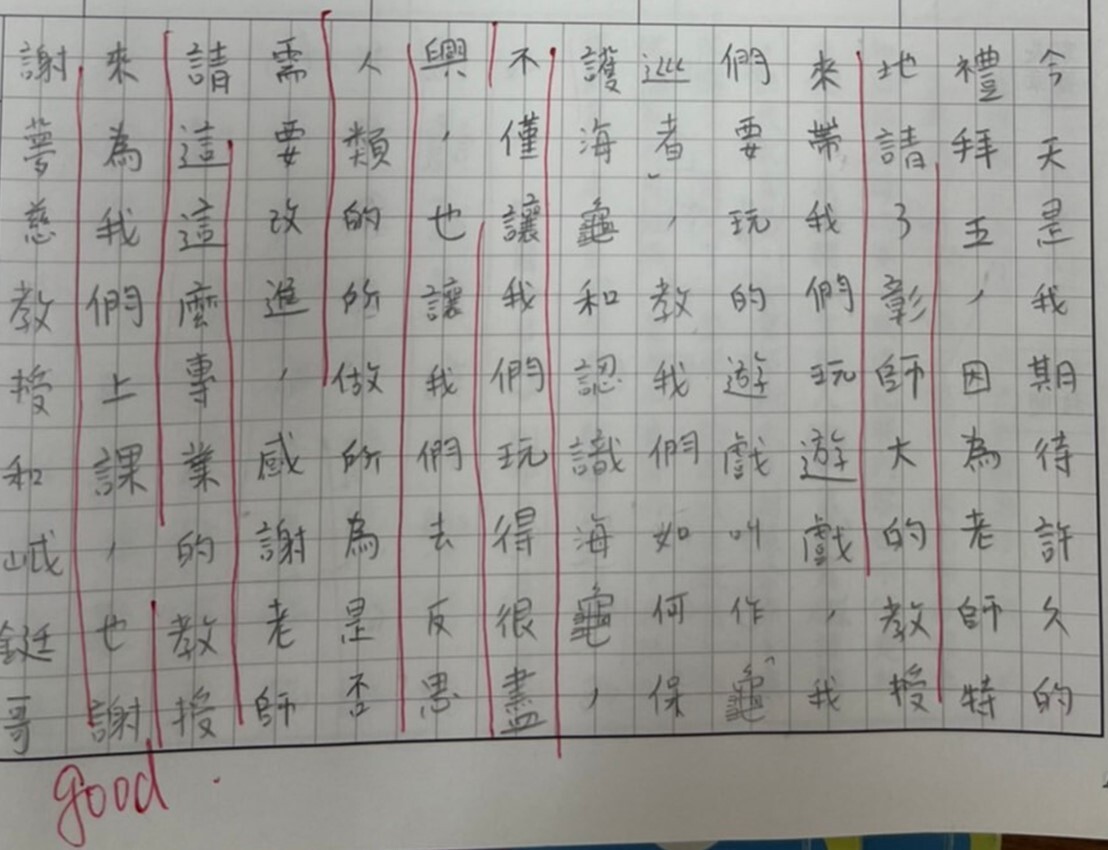 今天是我期待許久的
禮拜五，因為老師特
地請了彰師大的教授
來帶我們玩遊戲，我
們要玩的遊戲叫作「龜
巡者」，教我們如何保
護海龜和認識海龜，
不僅讓我們玩得很盡
興，也讓我們去反思
人類的所做所為是否
需要改進，感謝老師
請這這麼專業的教授
來為我們上課，也謝
謝夢慈教授和岷鋌哥
good.